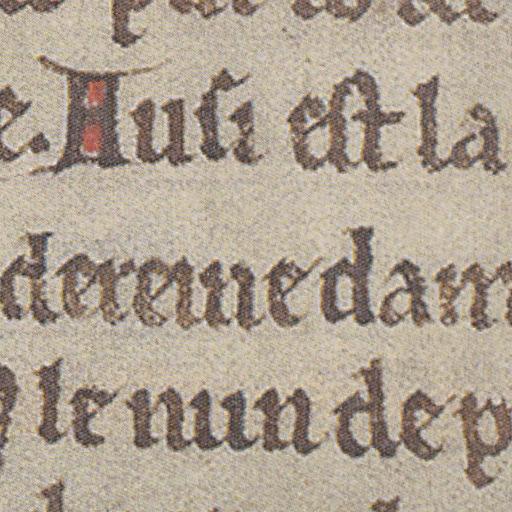 e. Ausi est la
dereine dam
le nun de p